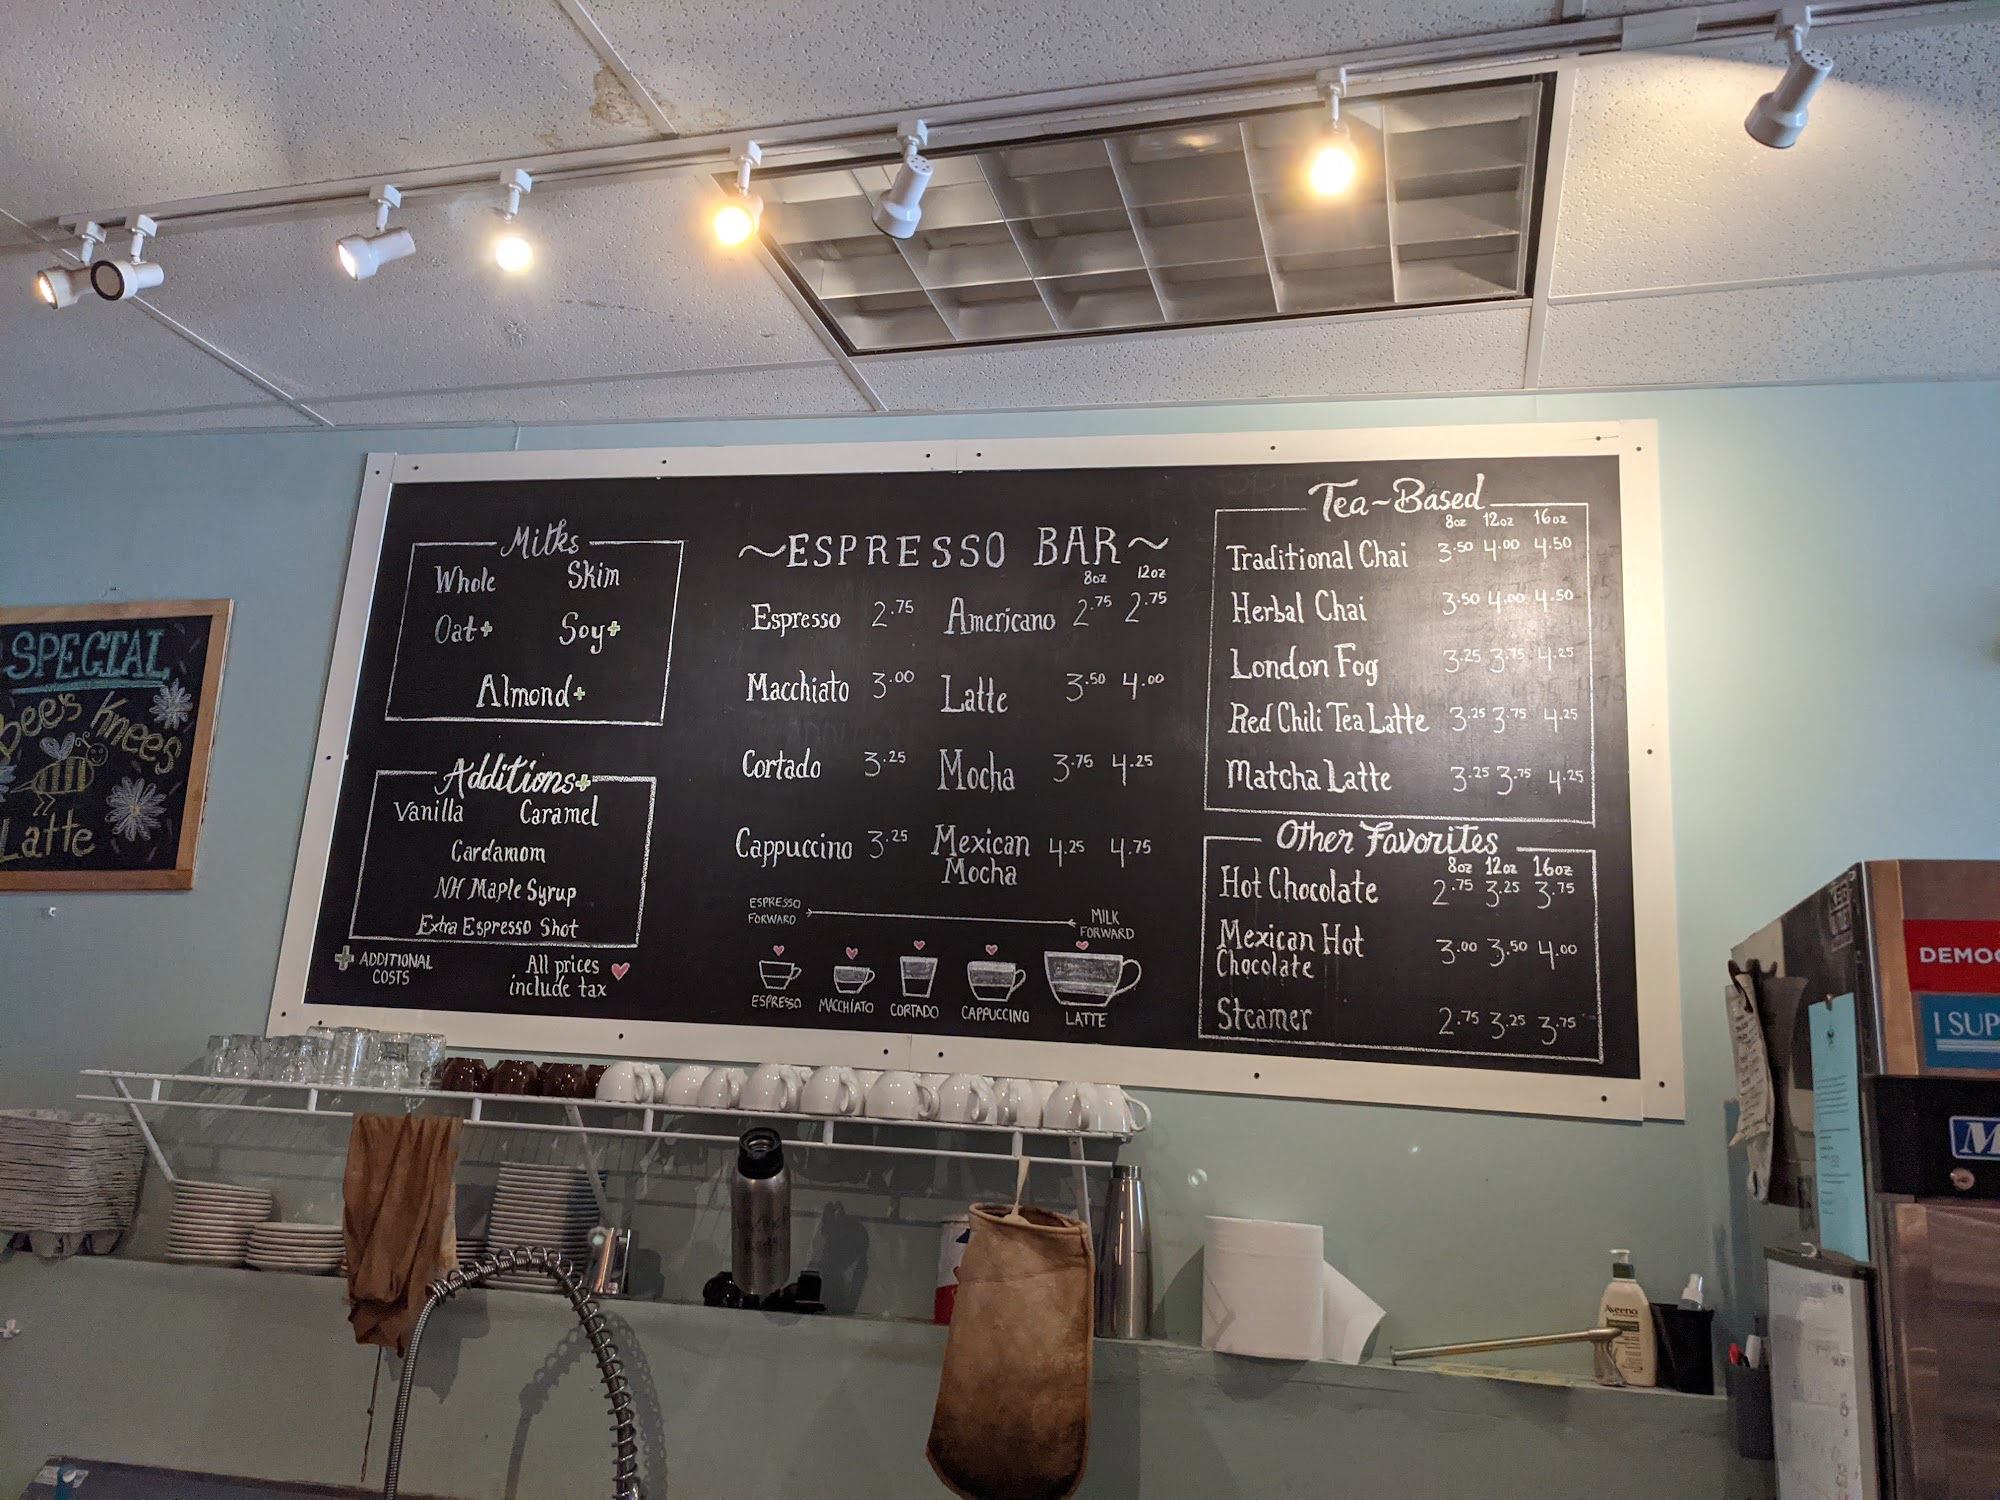 SPECIAL
Bee's Knees
Latte
Milks
Whole Skim
Oat+ Soy+
Almond+
Additions+
Vanilla Caramel
Cardamom
NH Maple Syrup
Extra Espresso Shot
+ ADDITIONAL COSTS
All prices
include tax
~ESPRESSO BAR~
8oz 12oz
Espresso 2.75 Americano 2.75 2.75
Macchiato 3.00 Latte 3.50 4.00
Cortado 3.25 Mocha 3.75 4.25
Cappuccino 3.25 Mexican Mocha 4.25 4.75
ESPRESSO FORWARD MILK FORWARD
ESPRESSO MACCHIATO CORTADO CAPPUCCINO LATTE
Tea~Based
8oz 12oz 16oz
Traditional Chai 3.50 4.00 4.50
Herbal Chai 3.50 4.00 4.50
London Fog 3.25 3.75 4.25
Red Chili Tea Latte 3.25 3.75 4.25
Matcha Latte 3.25 3.75 4.25
Other Favorites
8oz 12oz 16oz
Hot Chocolate 2.75 3.25 3.75
Mexican Hot Chocolate 3.00 3.50 4.00
Steamer 2.75 3.25 3.75
DEMOC
I SUP
M
Aveeno